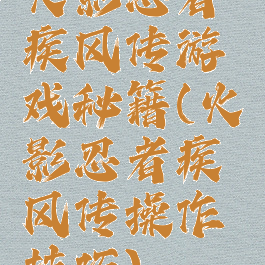 火影忍者
疾风传游
戏秘籍(火
影忍者疾
风传操作
技巧)